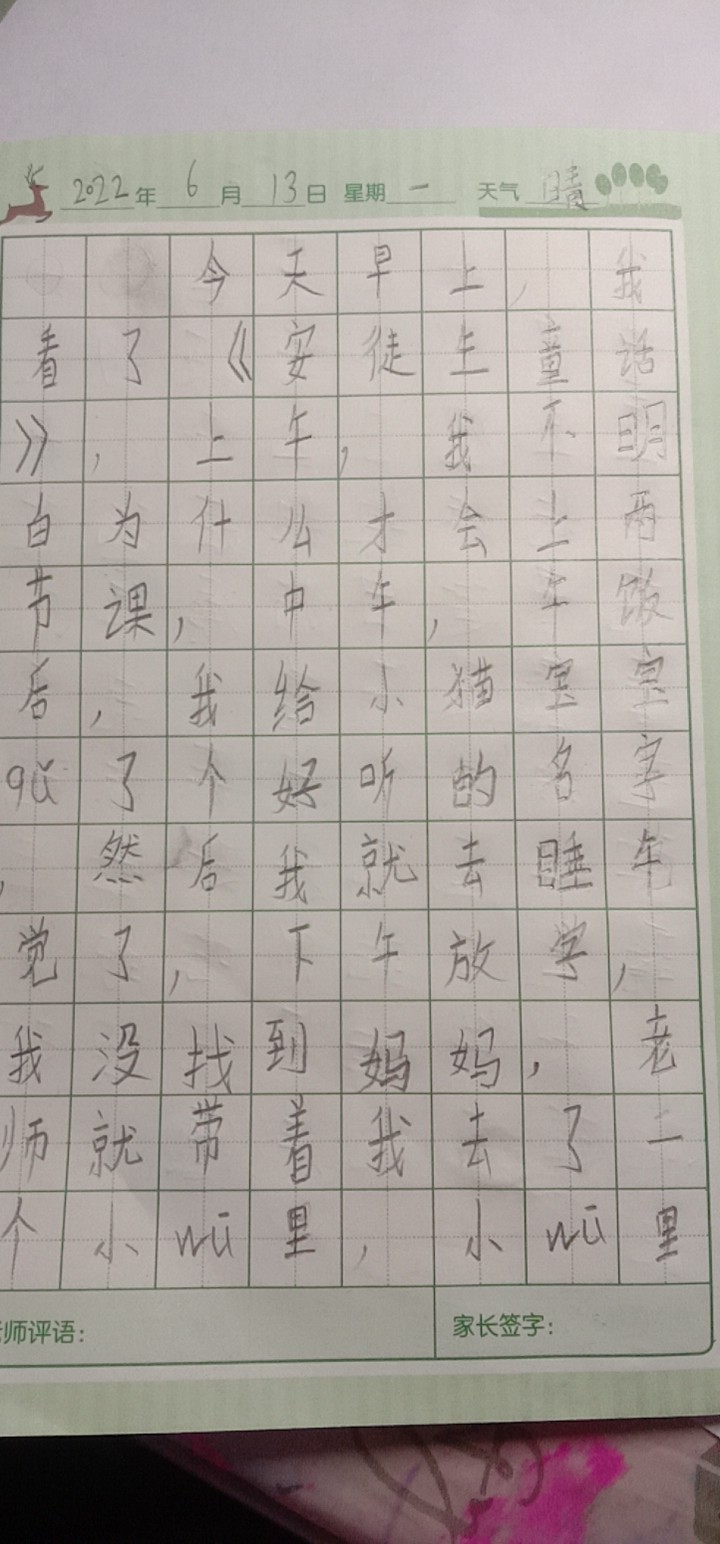 2022年6月13日 星期一 天气晴
今天早上，我
看了《安徒生童话
》，上午，我不明
白为什么才会上两
节课，中午，午饭
后，我给小猫宝宝
qǔ了个好听的名字
，然后我就去睡午
觉了，下午放学，
我没找到妈妈，老
师就带着我去了一
个小wū里，小wū里
师评语：
家长签字：